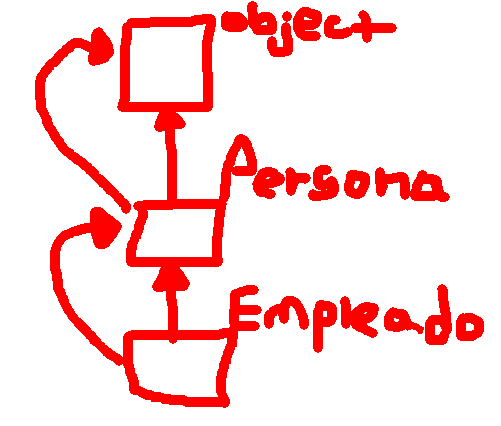 object
Persona
Empleado